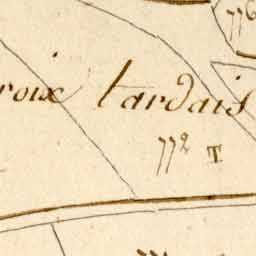 776
roix tardais
772 T